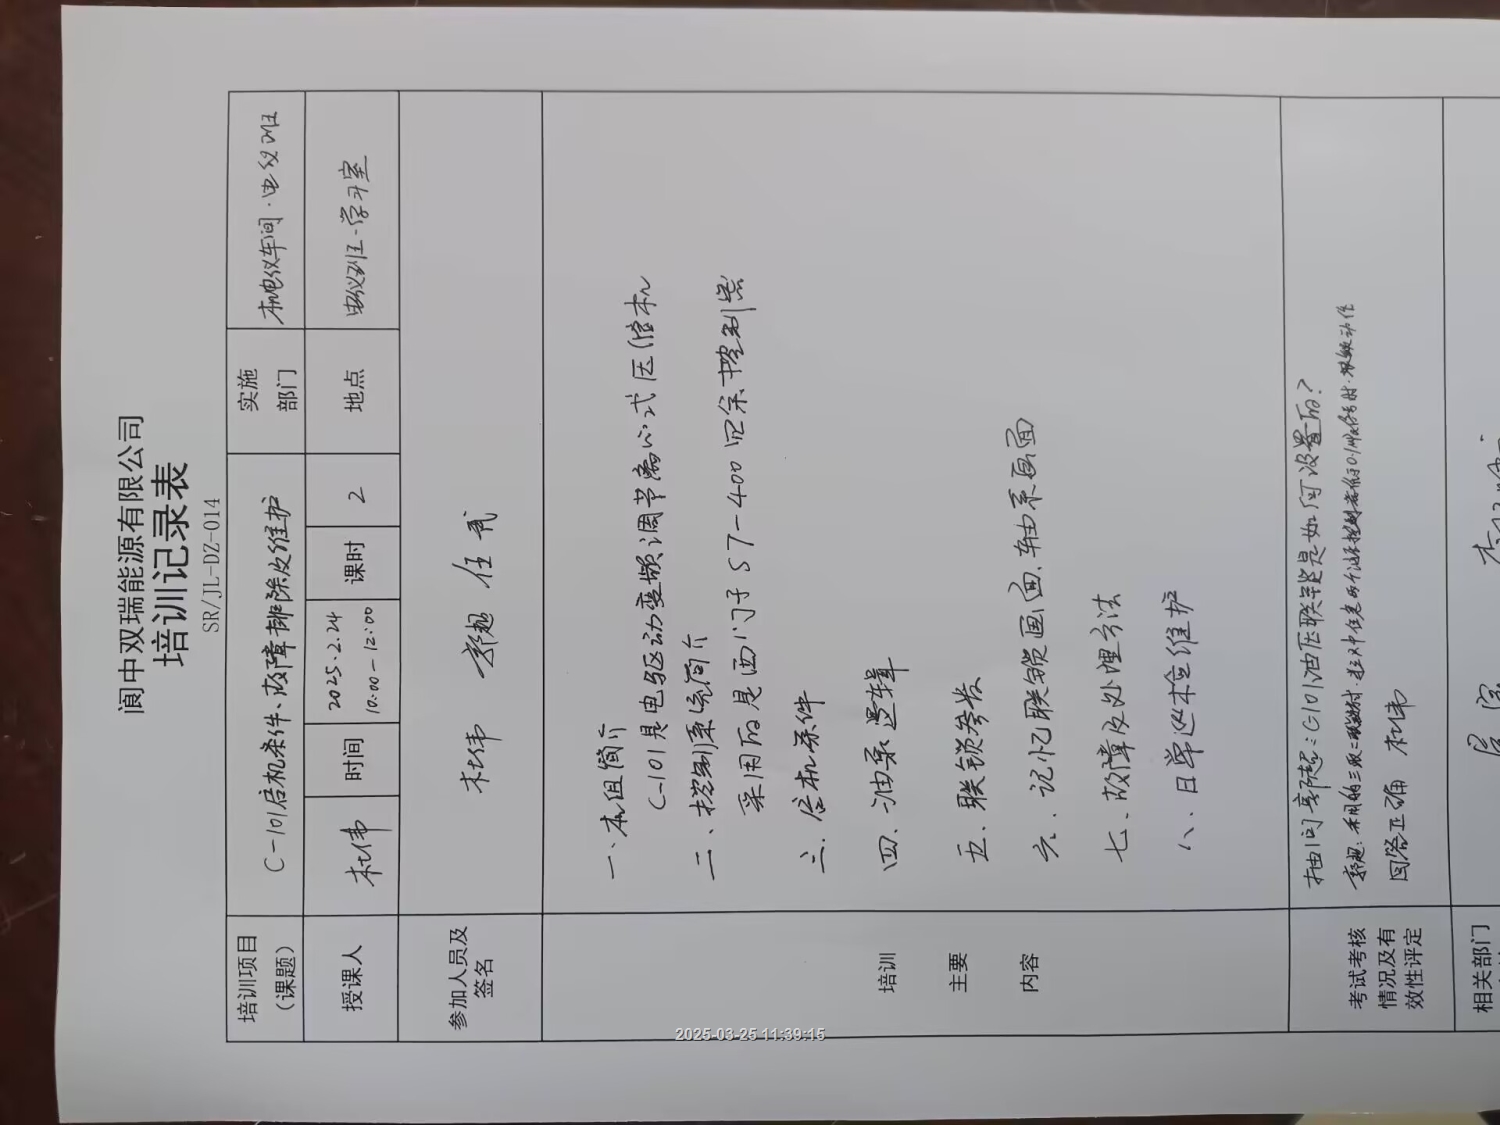 阆中双瑞能源有限公司
培训记录表
SR/JL-DZ-014
培训项目（课题） C-101启机条件、故障排除及维护 实施部门 机电仪车间·电仪班
授课人 杜伟 时间 2025.2.24 10:00-12:00 课时 2 地点 电仪班-学习室
参加人员及签名 杜伟 郭超 任武
培训主要内容
一、机组简介
C-101是电驱动变频调节离心式压缩机
二、控制系统简介
采用的是西门子S7-400冗余控制器
三、启机条件
四、油泵逻辑
五、联锁参数
六、记忆联锁画面、轴系画面
七、故障及处理方法
八、日常巡检维护
考试考核情况及有效性评定
抽问郭超：C101油压联锁是如何设置的？
郭超：采用的三取二
回答正确 杜伟
相关部门
2025-03-25 11:39:15